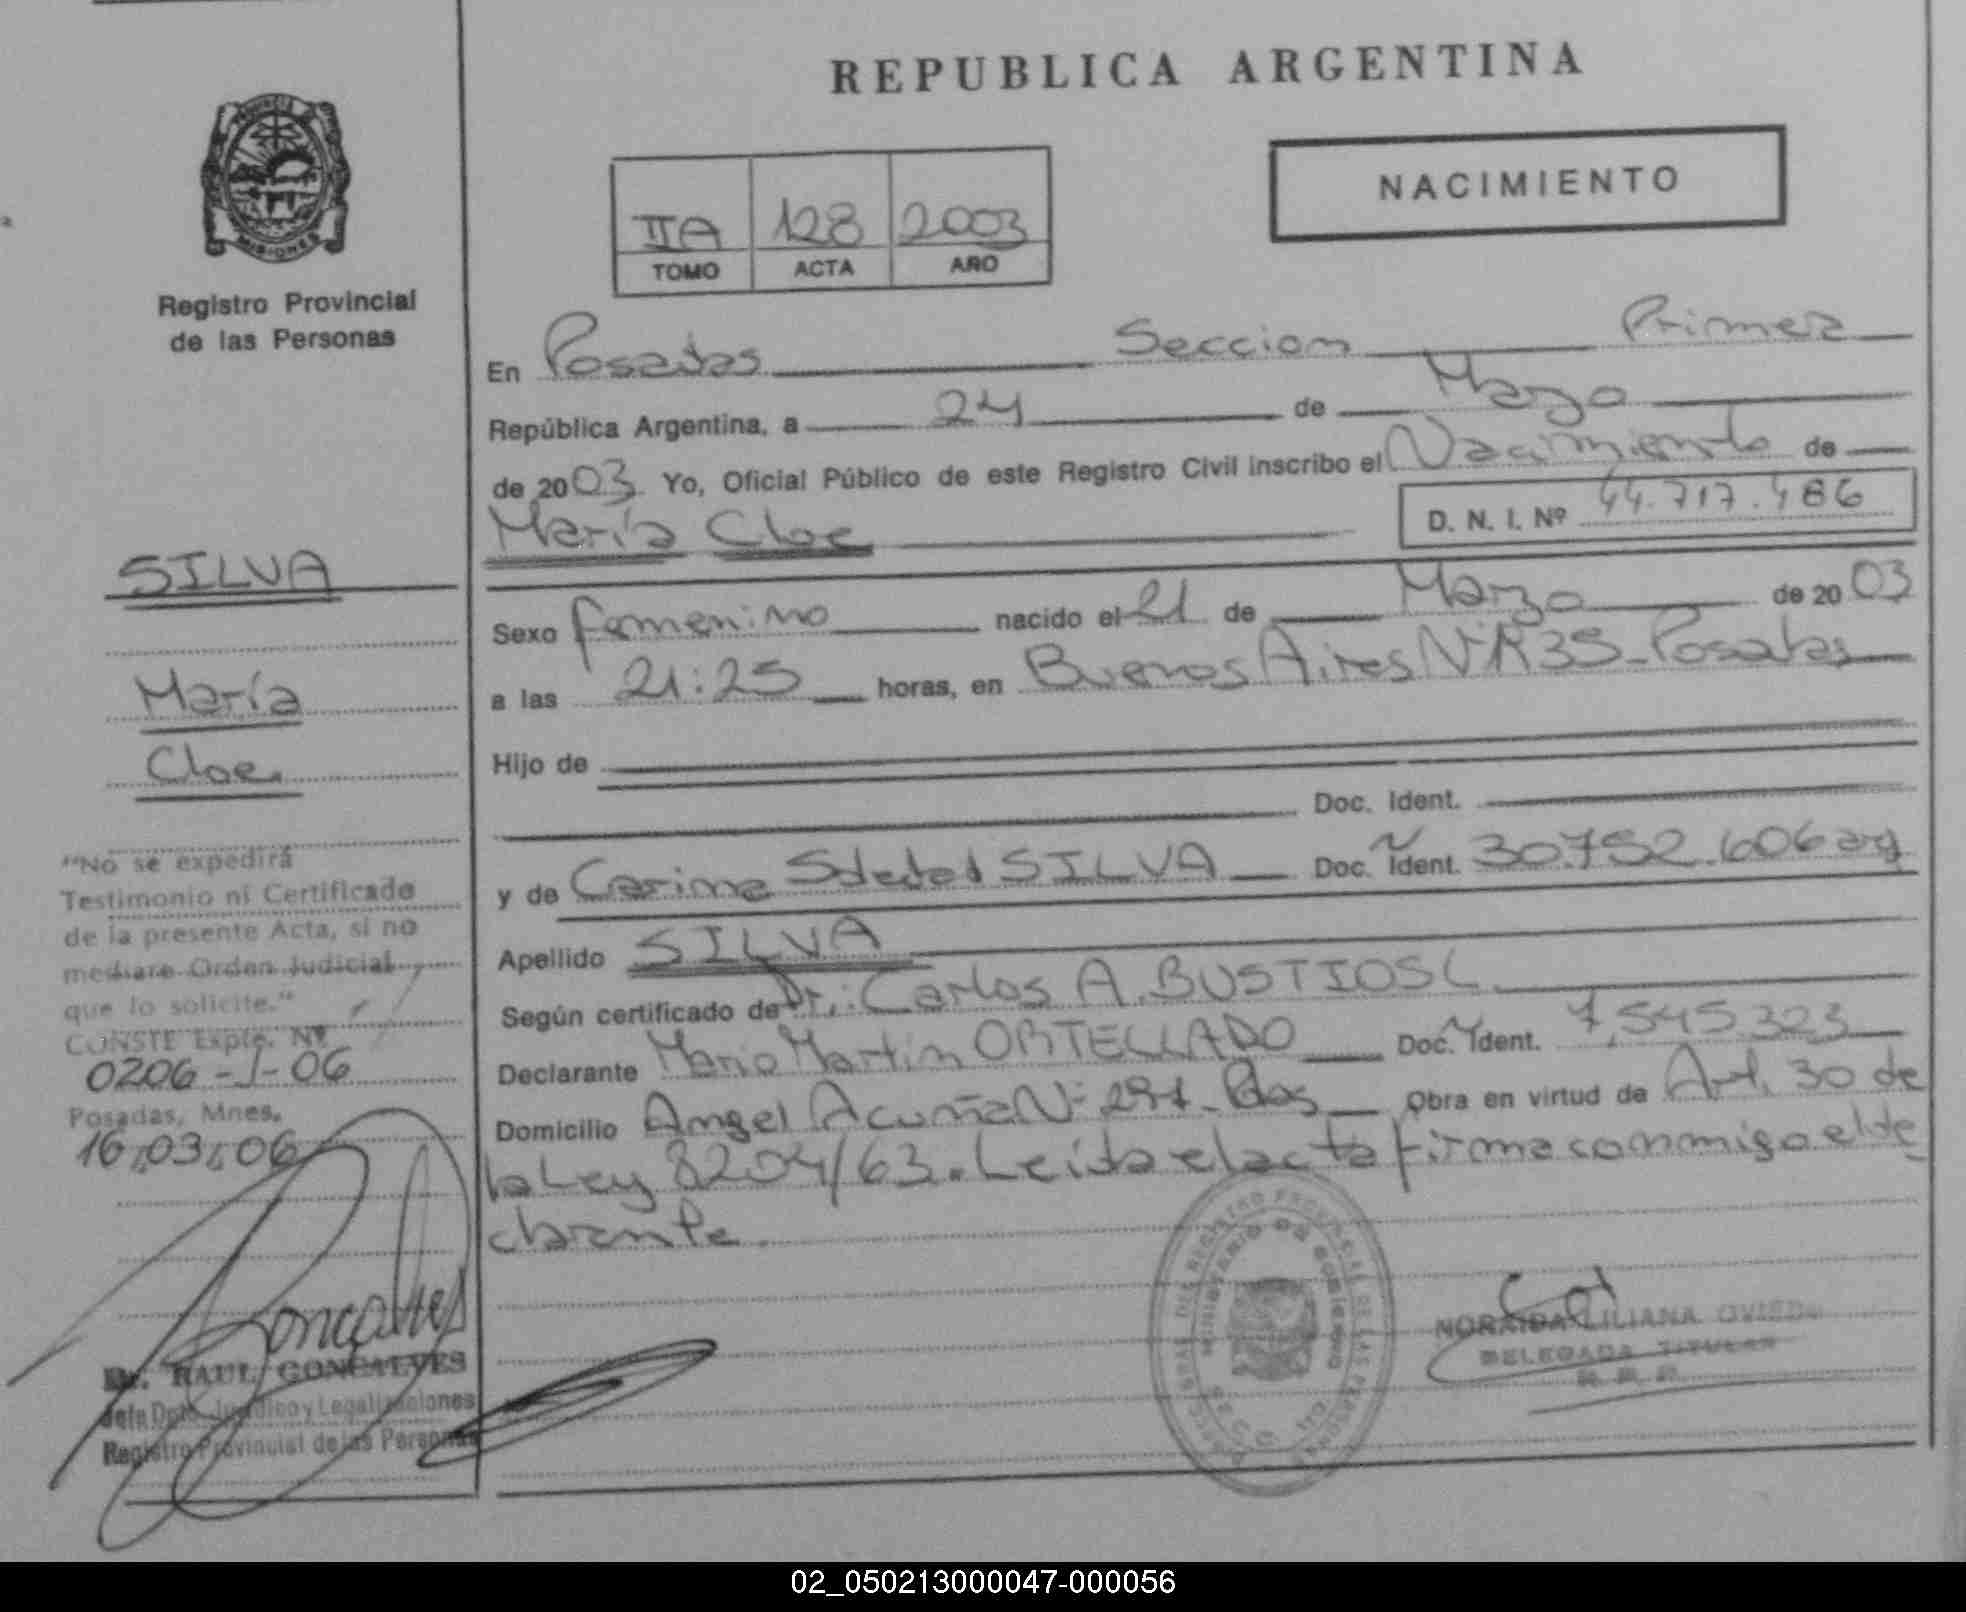 REPUBLICA ARGENTINA
NACIMIENTO
IIA 128 2003
TOMO ACTA AÑO
PROVINCIA DE
MISIONES
Registro Provincial
de las Personas
SILVA
María
Cloe
"No se expedirá
Testimonio ni Certificado
de la presente Acta, si no
mediare Orden Judicial
que lo solicite."
CONSTE Expte. Nº
0206-J-06
Posadas, Mnes.
16,03,06
Goncalves
Dr. RAUL GONCALVES
Jefe Dpto. Jurídico y Legalizaciones
Registro Provincial de las Personas
En Posadas Seccion Primera
República Argentina, a 24 de Marzo
de 2003 Yo, Oficial Público de este Registro Civil inscribo el Nacimiento de
María Cloe D. N. I. Nº 44.717.486
Sexo femenino nacido el 21 de Marzo de 2003
a las 21:25 horas, en Buenos Aires Posadas
Hijo de
Doc. Ident.
y de Carina Soledad SILVA Doc. Ident. 30.752.606 arg
Apellido SILVA
Según certificado de Dr.: Carlos A. BUSTIOS
Declarante Mario Martin ORTELLADO Doc. Ident. 7.545.323
Domicilio Angel Acuña Nº Pdas Obra en virtud de Art. 30 de
la Ley 8204/63. Leída el acta firma conmigo el de
clarante.
REGISTRO PROVINCIAL DE LAS PERSONAS
MINISTERIO DE GOBIERNO
NORAIDA LILIANA OVIEDO
DELEGADA TITULAR
R. P. P.
02_050213000047-000056